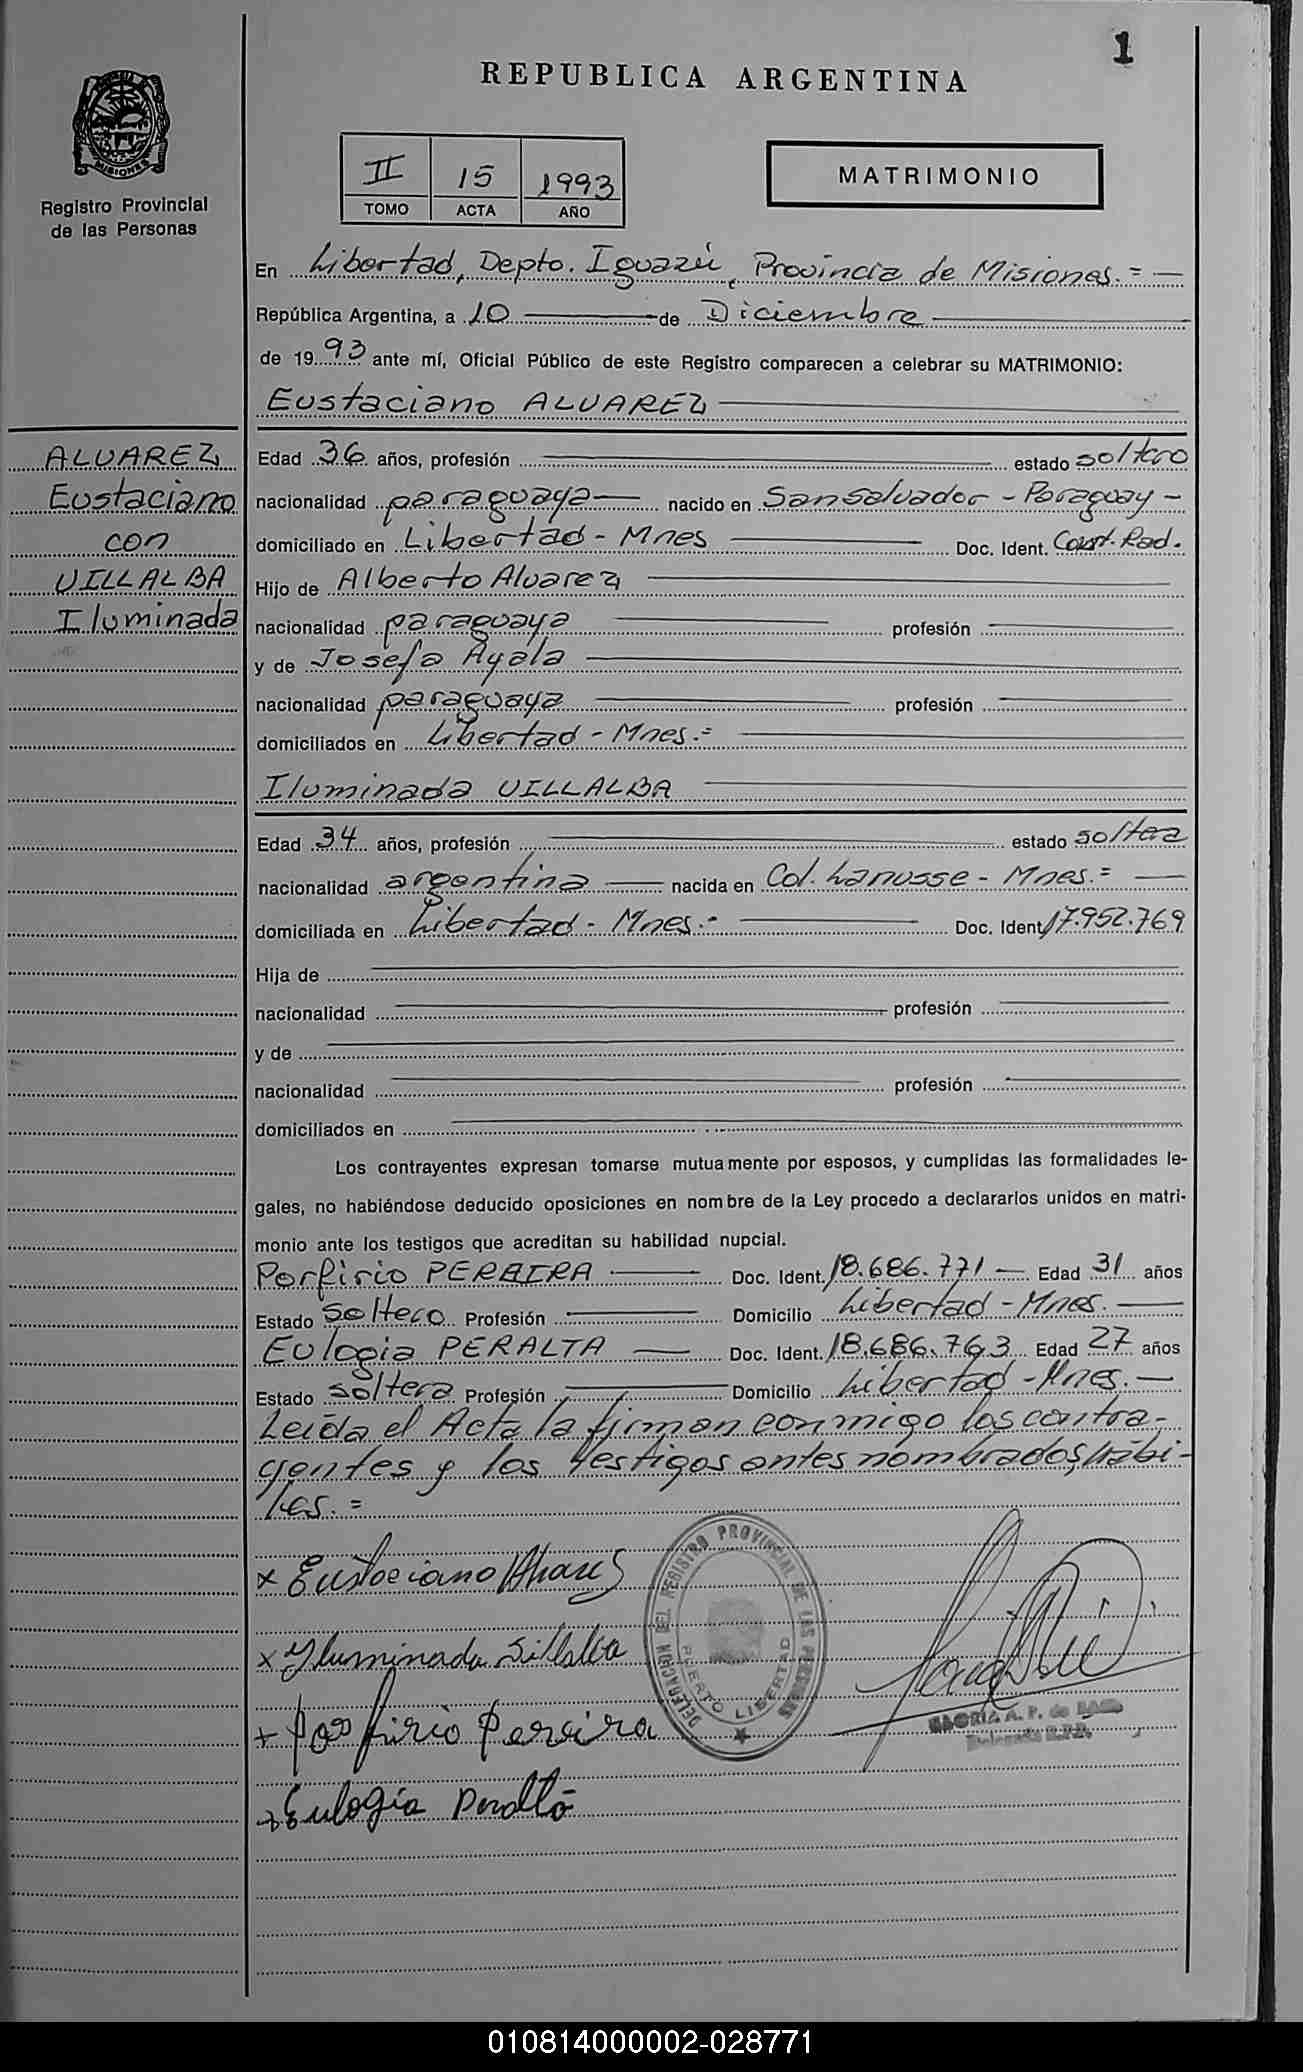 1
REPUBLICA ARGENTINA
MISIONES
Registro Provincial
de las Personas
II 15 1993
TOMO ACTA AÑO
MATRIMONIO
En Libertad, Depto. Iguazú, Provincia de Misiones.=
República Argentina, a 10 de Diciembre
de 1993 ante mí, Oficial Público de este Registro comparecen a celebrar su MATRIMONIO:
Eustaciano ALVAREZ
ALVAREZ
Eustaciano
con
VILLALBA
Iluminada
Edad 36 años, profesión estado soltero
nacionalidad paraguaya nacido en San Salvador - Paraguay -
domiciliado en Libertad - Mnes Doc. Ident. Const. Rad.
Hijo de Alberto Alvarez
nacionalidad paraguaya profesión
y de Josefa Ayala
nacionalidad paraguaya profesión
domiciliados en Libertad - Mnes.=
Iluminada VILLALBA
Edad 34 años, profesión estado soltera
nacionalidad argentina nacida en Col. Lanusse - Mnes.=
domiciliada en Libertad - Mnes.- Doc. Ident 17.952.769
Hija de
nacionalidad profesión
y de
nacionalidad profesión
domiciliados en
Los contrayentes expresan tomarse mutuamente por esposos, y cumplidas las formalidades le-
gales, no habiéndose deducido oposiciones en nombre de la Ley procedo a declararlos unidos en matri-
monio ante los testigos que acreditan su habilidad nupcial.
Porfirio PEREIRA Doc. Ident. 18.686.771 Edad 31 años
Estado soltero Profesión Domicilio Libertad - Mnes.
Eulogia PERALTA Doc. Ident. 18.686.763 Edad 27 años
Estado soltera Profesión Domicilio Libertad - Mnes.
Leída el Acta la firman conmigo los contra-
yentes y los testigos antes nombrados, hábi-
les.=
x Eustaciano Alvarez
x Yluminada Sillalba
+ Porfirio Pereira
x Eulogia Peralta
DELEGACION DEL REGISTRO PROVINCIAL DE LAS PERSONAS
PUERTO LIBERTAD
GLORIA A. P. de
Delegada R.P.P.
010814000002-028771